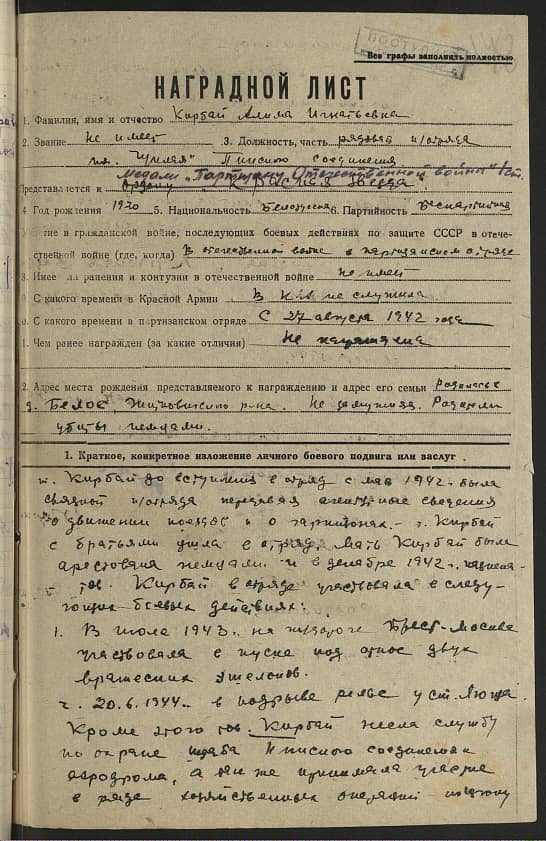 Все графы заполнить полностью
НАГРАДНОЙ ЛИСТ
1. Фамилия, имя и отчество Кирбай Алима Игнатьевна
2. Звание не имеет 3. Должность, часть рядовая п/отряда
им. Пинского соединения
медали "Партизану Отечественной войны" I ст.
Представляется к ордену "Красная Звезда"
4 Год рождения 1920 5. Национальность Белоруска 6. Партийность Беспартийная
Участие в гражданской войне, последующих боевых действиях по защите СССР в отече-
ственной войне (где, когда) В отечественной войне в партизанском отряде
ранения и контузии в отечественной войне не имеет
9 С какого времени в Красной Армии В КА не служила
С какого времени в партизанском отряде С 27 августа 1942 года
1. Чем ранее награжден (за какие отличия) не награждена
2. Адрес места рождения представляемого к награждению и адрес его семьи
д. Белое, Житковичского р-на. Не замужняя. Родители
убиты немцами.
1. Краткое, конкретное изложение личного боевого подвига или заслуг
т. Кирбай до вступления в отряд с мая 1942 г. была
связной п/отряда передавая агентурные сведения
о движении поездов и о гарнизонах. - т. Кирбай
с братьями ушла в отряд, мать Кирбай была
арестована немцами и в декабре 1942 г.
тов. Кирбай в отряде участвовала в следу-
ющих боевых действиях:
1. В июле 1943 г. на ж/дороге Брест-Москва
участвовала в пуске под откос двух
вражеских эшелонов.
2. 20.6.1944 г. в подрыве рельс у ст.
Кроме этого тов. Кирбай несла службу
по охране штаба Пинского соединения
аэродрома, а так же принимала участие
в ряде хозяйственных операций